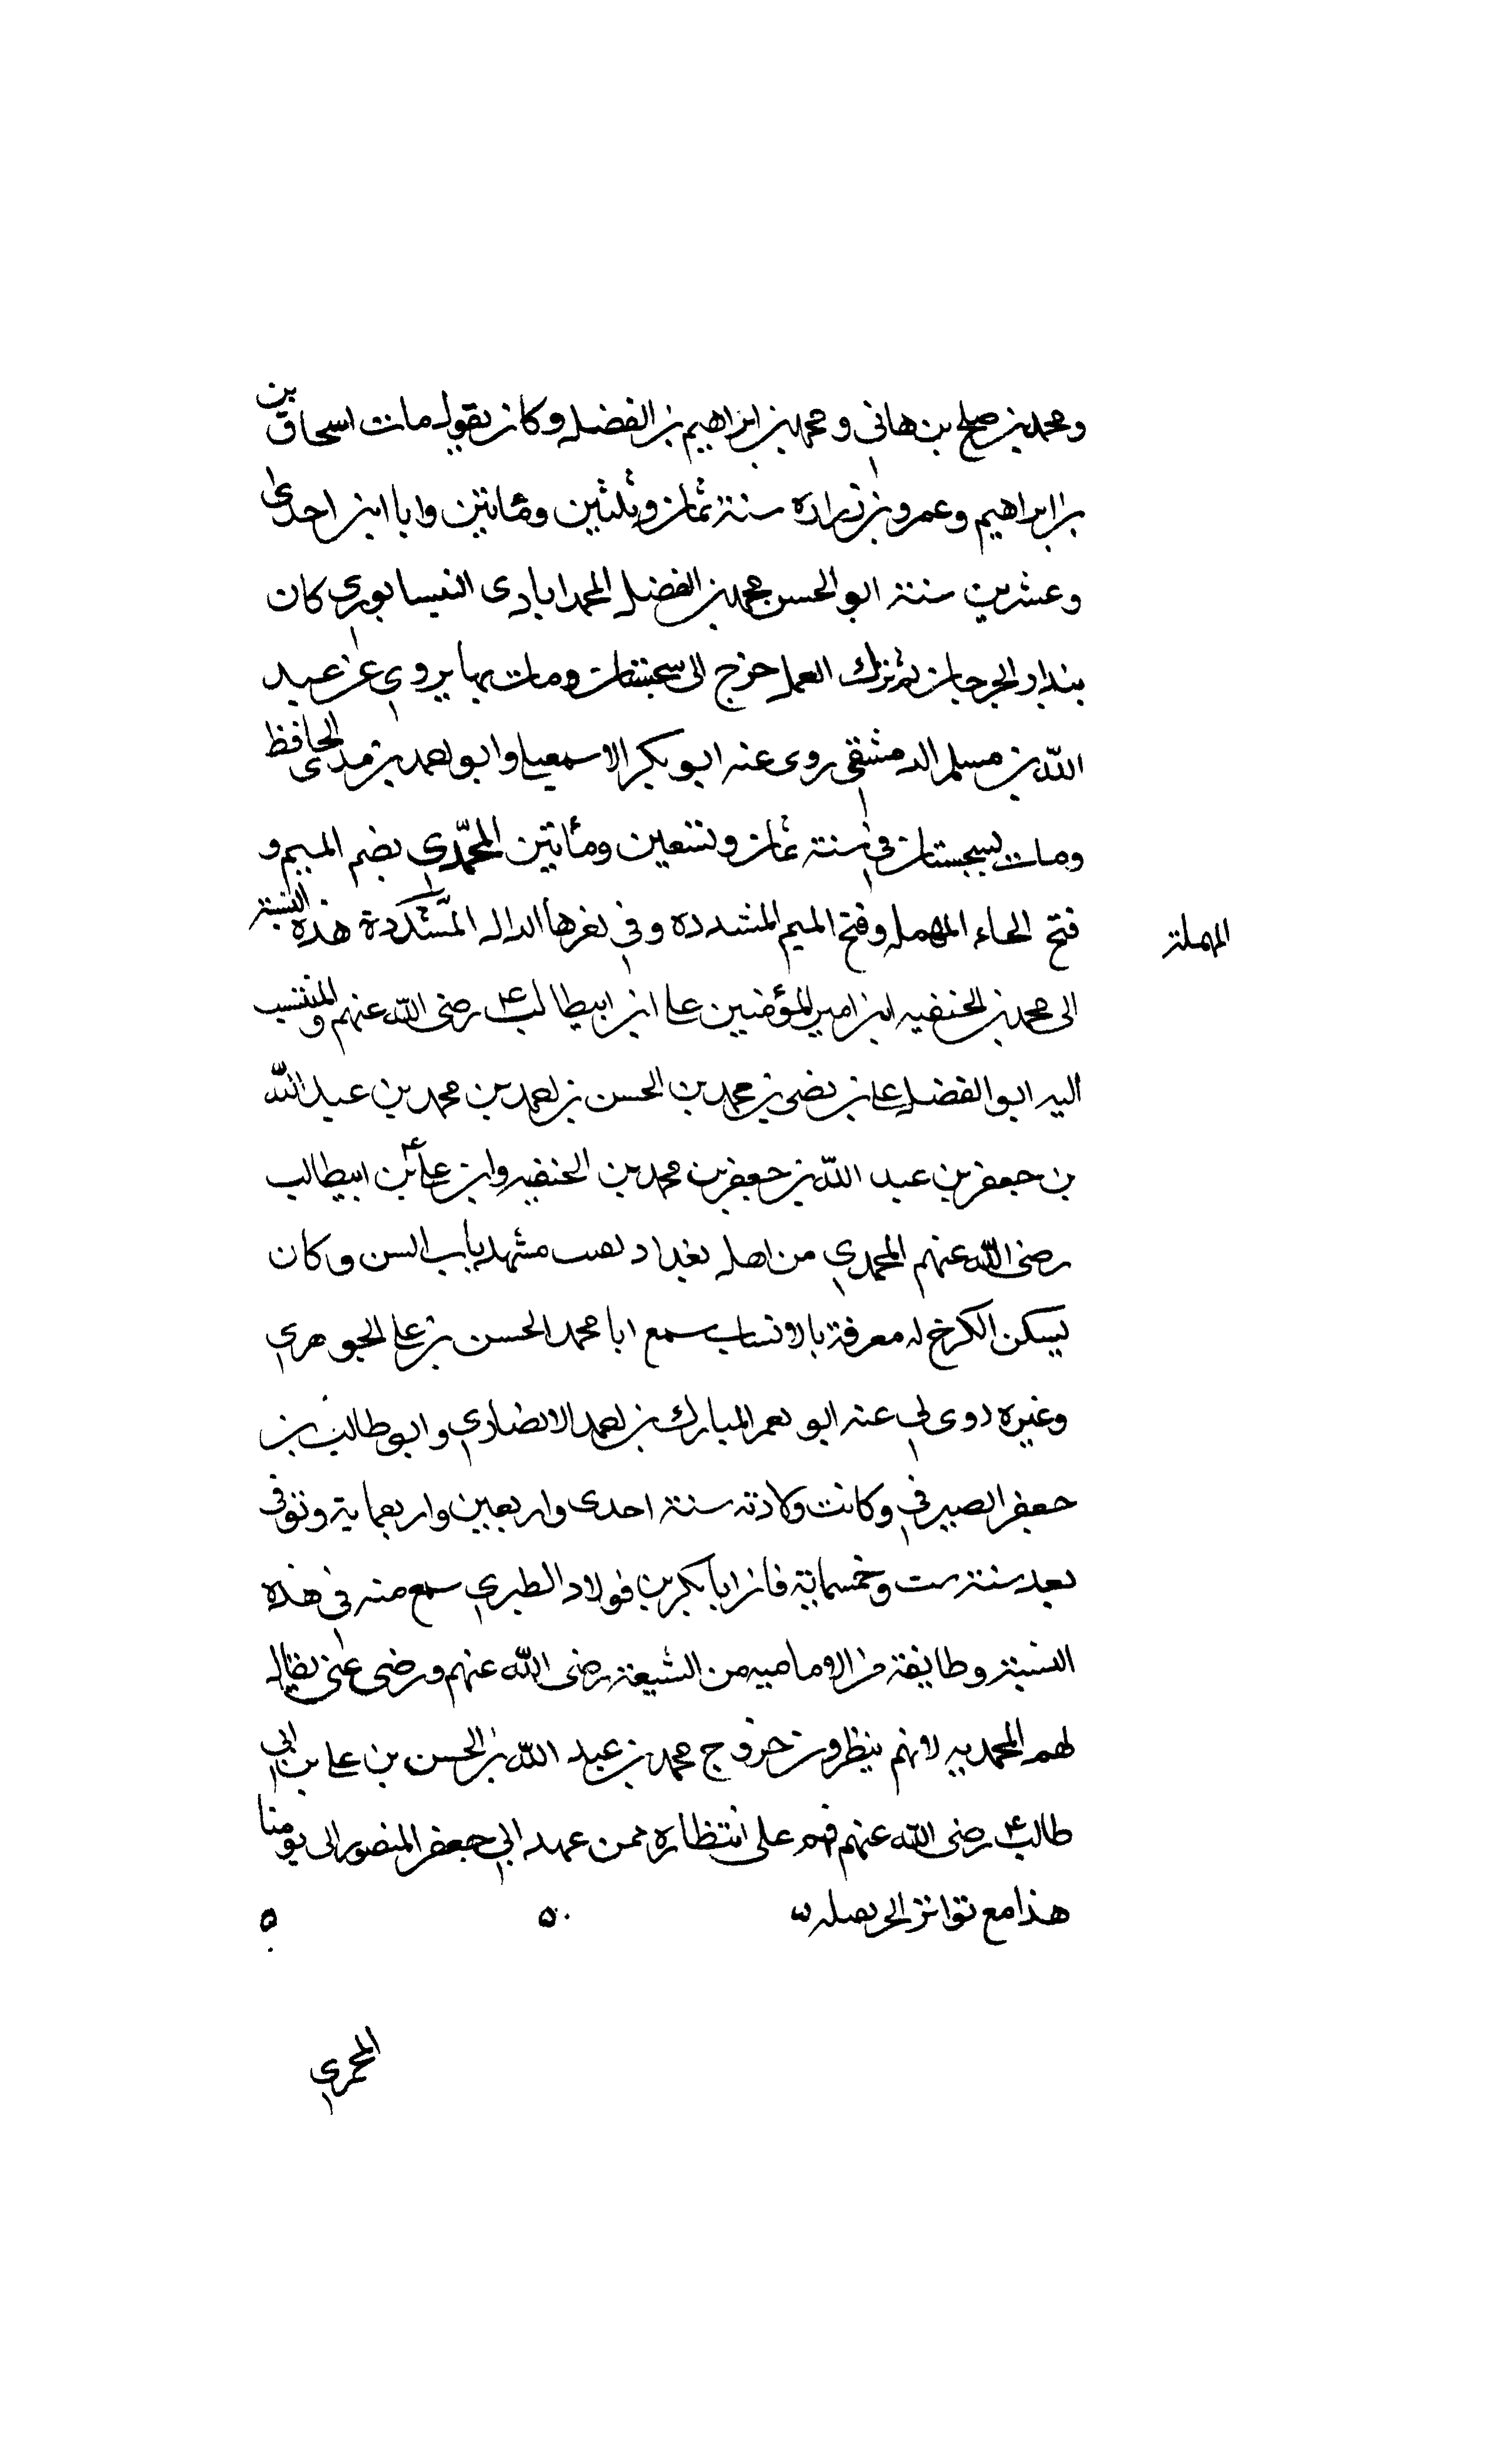 ومحمد بن صلح بن هاني ومحمد بن ابراهيم بن الفضل وكان يقول مات اسحاق بن
بن ابراهيم وعمرو بن زراره سنة ثمان وثلثين ومائتين وابا ابن احدى
وعشرين سنة ابو الحسن محمد بن الفضل المحمدابادى النيسابوري كان
بندار الجرجان ثم ترك العمل خرج الى سجستان ومات بها يروي عن عبد
الله بن مسلم الدمشقي روى عنه ابو بكر الاسمعيلي وابو احمد بن عدى الحافظ
ومات بسجستان في سنة ثمان وتسعين ومائتين المحمّدي بضم الميم و
فتح الحاء المهمله وفتح الميم المشدده وفي اخرها الدال المشددة هذه النسبة
المهملة
الى محمد بن الحنفيه ابن امير المؤمنين على ابن ابيطالب ع رضى الله عنهم والمنتسب
اليه ابو الفضل على بن نضى بن محمد بن الحسن بن احمد بن محمد بن عبد الله
بن جعفر بن عبد الله بن جعفر بن محمد بن الحنفيه وابن على ع بن ابيطالب
رضى الله عنهم المحمدي من اهل بغداد مشهد باب السن وكان
يسكن الكرخ له معرفة بالانساب سمع ابا محمد الحسن بن على الجوهري
وغيره روى لي عنه ابو المعمر المبارك بن احمد الانصاري وابو طالب بن
جعفر الصيرفي وكانت ولادته سنة احدى واربعين واربعماية وتوفى
بعد سنة ست وخمسماية فان ابا بكر بن فولاد الطبري سمع منه في هذه
السنة وطايفة من الاماميه من الشيعة رضى الله عنهم ورضى عنى يقال
لهم المحمديه لانهم ينظرون خروج محمد بن عبد الله بن الحسن بن على بن ابي
طالب ع رضى الله عنهم فهم على انتظاره من عهد ابي جعفر المنصور الى يومنا
هذا مع تواتر
المحمري